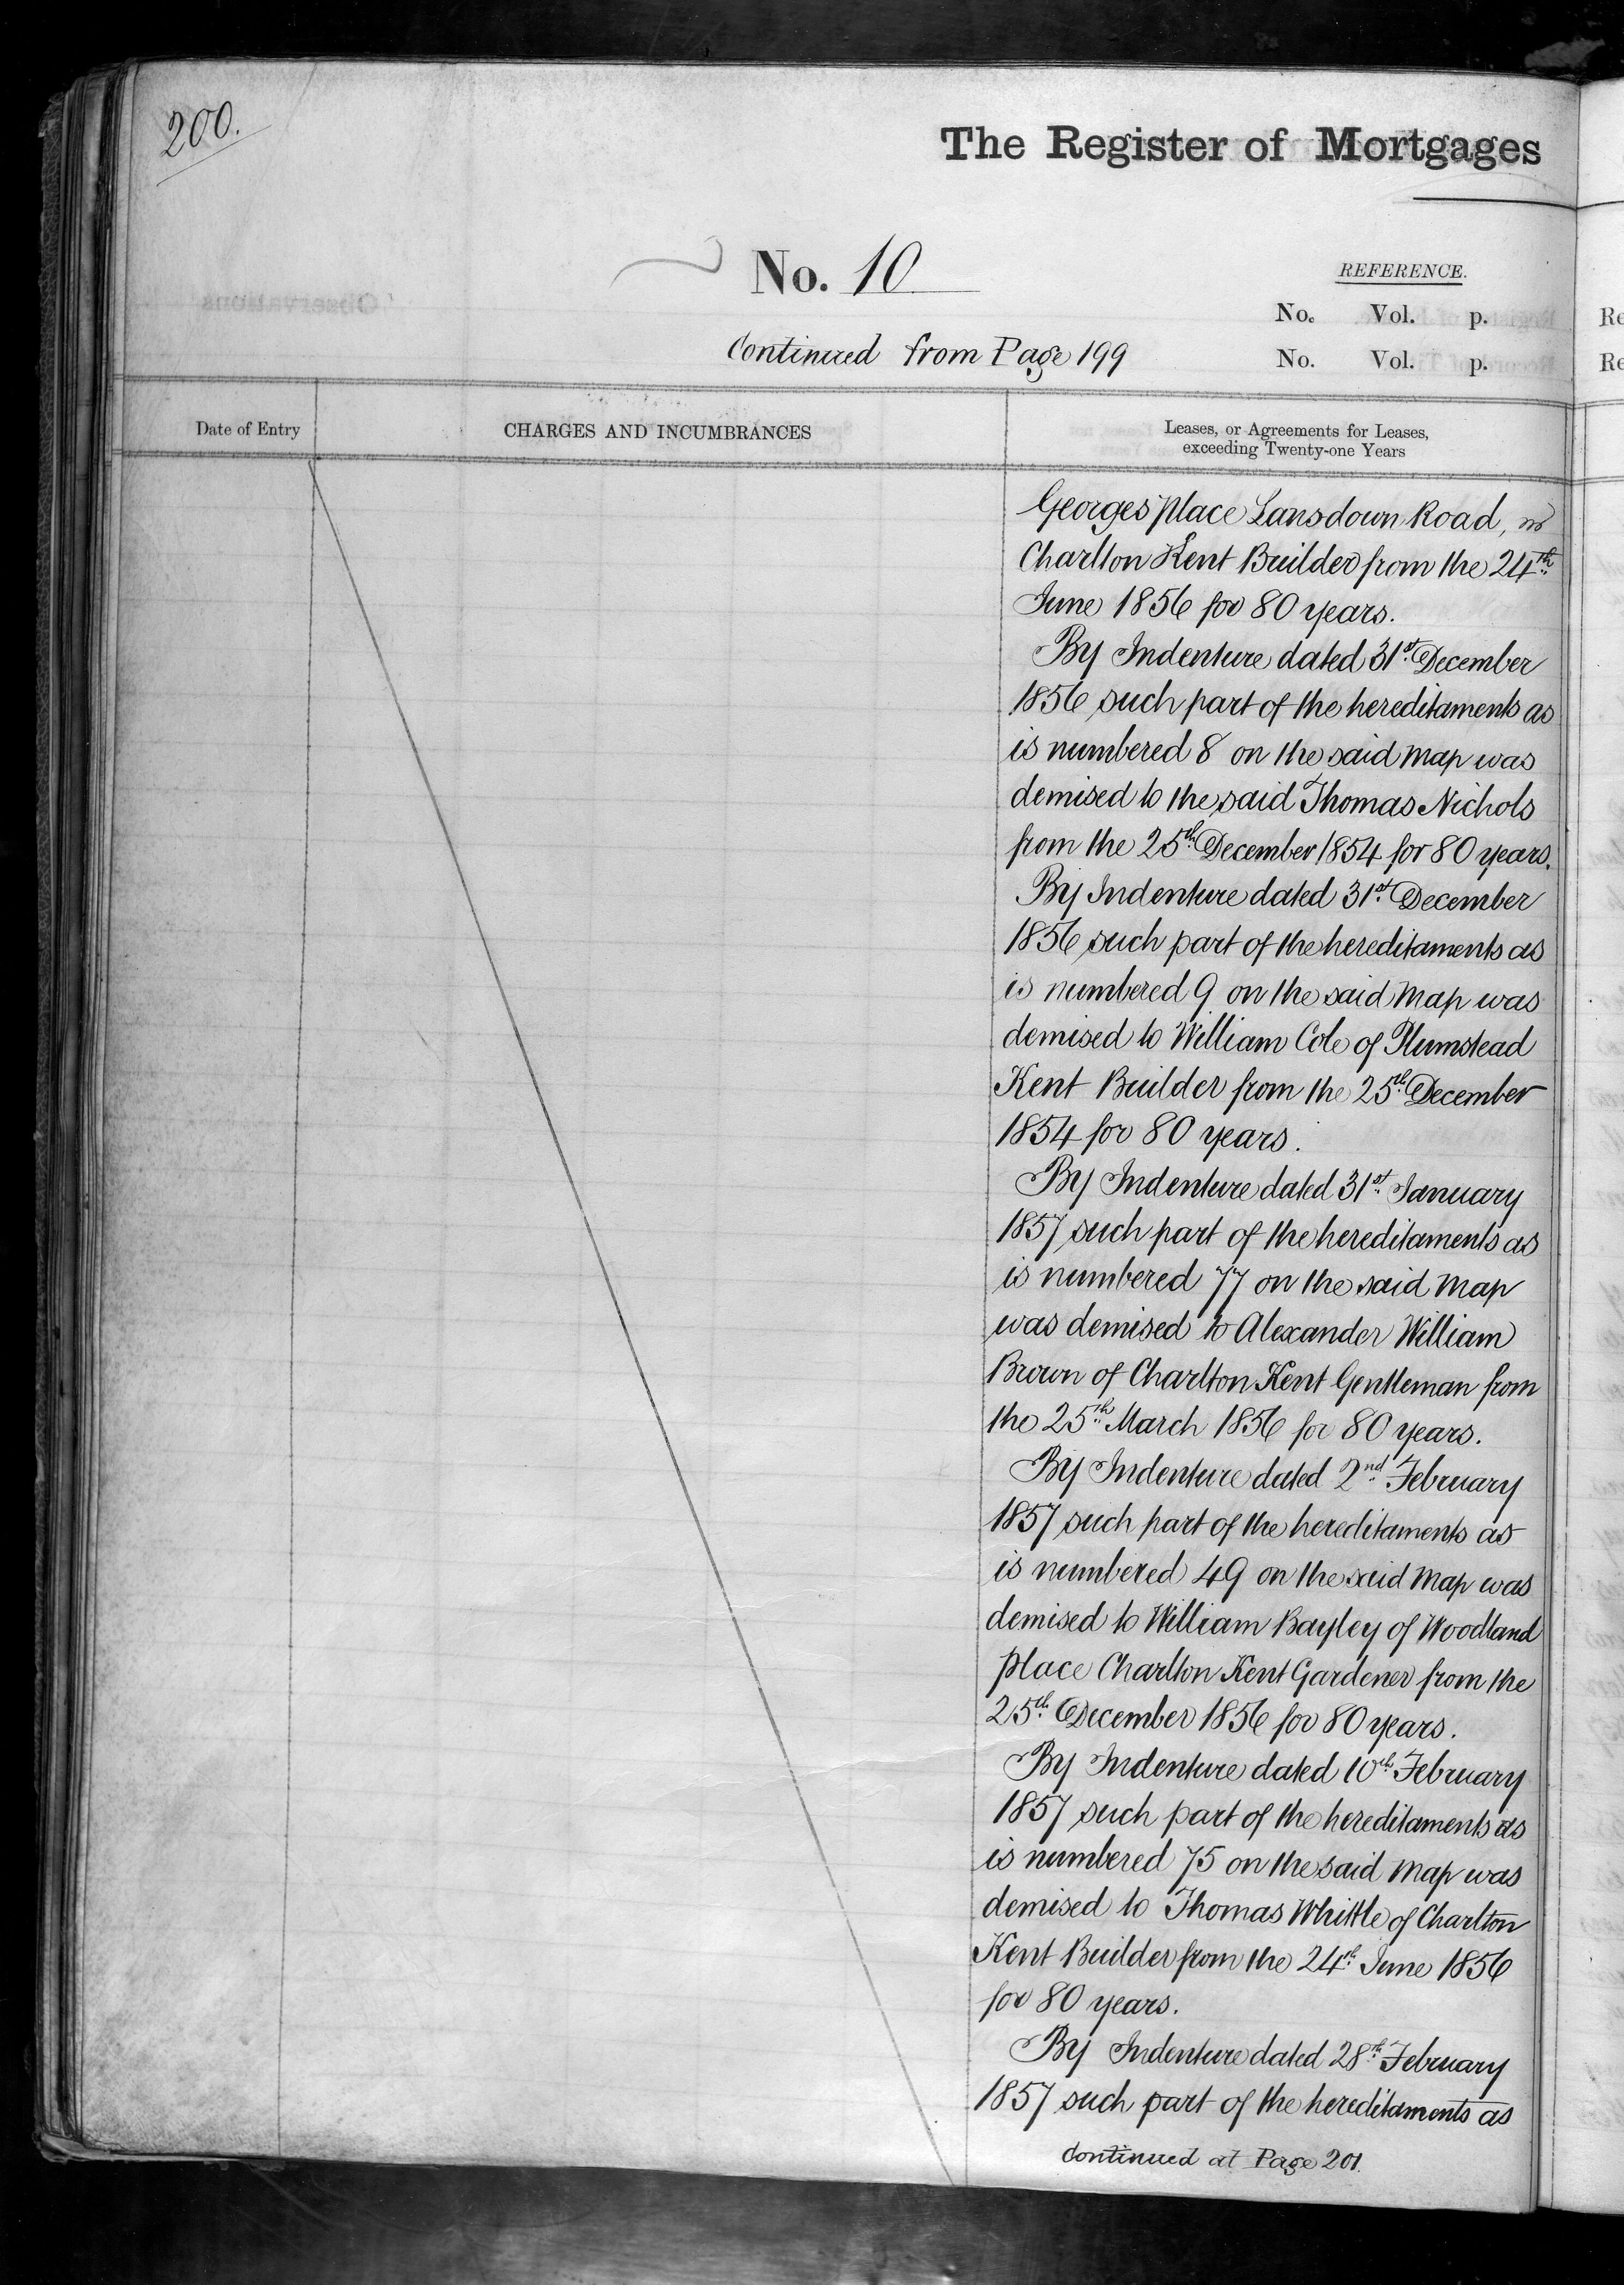 200.
The Register of Mortgages
No. 10
REFERENCE.
No. Vol. p.
Continued from Page 199
No. Vol. p.
Date of Entry
CHARGES AND INCUMBRANCES
Leases, or Agreements for Leases,
exceeding Twenty-one Years
Georges place Lansdown Road, in
Charlton Kent Builder from the 24th
June 1856 for 80 years.
By Indenture dated 31st December
1856 such part of the hereditaments as
is numbered 8 on the said map was
demised to the said Thomas Nichols
from the 25th December 1854 for 80 years.
By Indenture dated 31st December
1856 such part of the hereditaments as
is numbered 9 on the said map was
demised to William Cole of Plumstead
Kent Builder from the 25th December
1854 for 80 years.
By Indenture dated 31st January
1857 such part of the hereditaments as
is numbered 77 on the said map
was demised to Alexander William
Brown of Charlton Kent Gentleman from
the 25th March 1856 for 80 years.
By Indenture dated 2nd February
1857 such part of the hereditaments as
is numbered 49 on the said map was
demised to William Bayley of Woodland
place Charlton Kent Gardener from the
25th December 1856 for 80 years.
By Indenture dated 10th February
1857 such part of the hereditaments as
is numbered 75 on the said map was
demised to Thomas Whittle of Charlton
Kent Builder from the 24th June 1856
for 80 years.
By Indenture dated 28th February
1857 such part of the hereditaments as
Continued at Page 201.
Re
Re